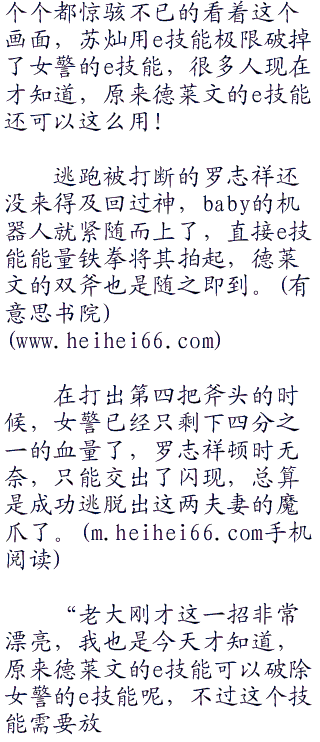 个个都惊骇不已的看着这个
画面，苏灿用e技能极限破掉
了女警的e技能，很多人现在
才知道，原来德莱文的e技能
还可以这么用！
逃跑被打断的罗志祥还
没来得及回过神，baby的机
器人就紧随而上了，直接e技
能能量铁拳将其拍起，德莱
文的双斧也是随之即到。(有
意思书院)
(www.heihei66.com)
在打出第四把斧头的时
候，女警已经只剩下四分之
一的血量了，罗志祥顿时无
奈，只能交出了闪现，总算
是成功逃脱出这两夫妻的魔
爪了。(m.heihei66.com手机
阅读)
“老大刚才这一招非常
漂亮，我也是今天才知道，
原来德莱文的e技能可以破除
女警的e技能呢，不过这个技
能需要放